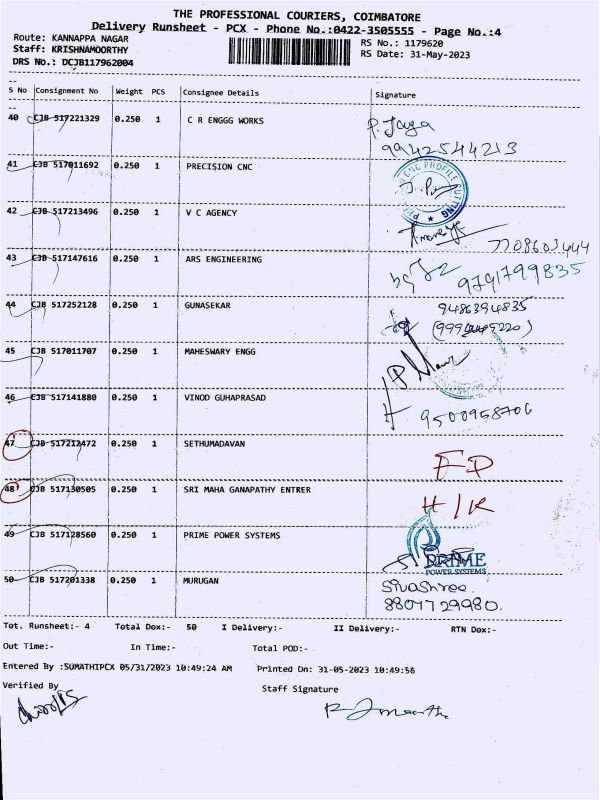 THE PROFESSIONAL COURIERS, COIMBATORE
Delivery Runsheet - PCX - Phone No.:0422-3505555 - Page No.:4
Route: KANNAPPA NAGAR
RS No.: 1179620
Staff: KRISHNAMOORTHY
RS Date: 31-May-2023
DRS No.: DCJB117962004
S No Consignment No Weight PCS Consignee Details Signature
40 CJB 517221329 0.250 1 C R ENGGG WORKS P. Jaya
9942544213
41 CJB 517011692 0.250 1 PRECISION CNC
CNC PROFILE CUTTING
42 CJB 517213496 0.250 1 V C AGENCY
7708603444
43 CJB 517147616 0.250 1 ARS ENGINEERING
9791799835
44 CJB 517252128 0.250 1 GUNASEKAR 9486394835
45 CJB 517011707 0.250 1 MAHESWARY ENGG
46 CJB 517141880 0.250 1 VINOD GUHAPRASAD
9500958706
47 CJB 517212472 0.250 1 SETHUMADAVAN
48 CJB 517130505 0.250 1 SRI MAHA GANAPATHY ENTRER
49 CJB 517128560 0.250 1 PRIME POWER SYSTEMS
PRIME
POWER SYSTEMS
50 CJB 517201338 0.250 1 MURUGAN Sivashree.
8807729980.
Tot. Runsheet:- 4 Total Dox:- 50 I Delivery:- II Delivery:- RTN Dox:-
Out Time:- In Time:- Total POD:-
Entered By :SUMATHIPCX 05/31/2023 10:49:24 AM Printed On: 31-05-2023 10:49:56
Verified By
Staff Signature